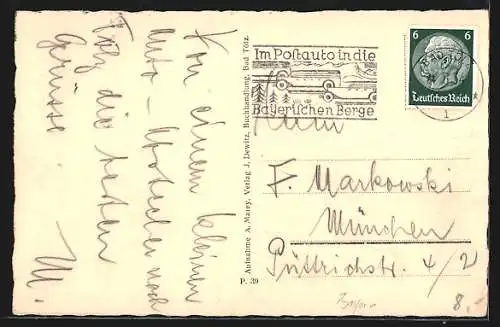 Von einem kleinen
Auto-Abstecher nach
Tölz die besten
Grüsse.
M.
Aufnahme A. Marey, Verlag J. Dewitz, Buchhandlung, Bad Tölz.
P. 39
Im Postauto in die
Bayerischen Berge
6 6
Deutsches Reich
1
F. Markowski
München
Püttrichstr. 4/2
8.-